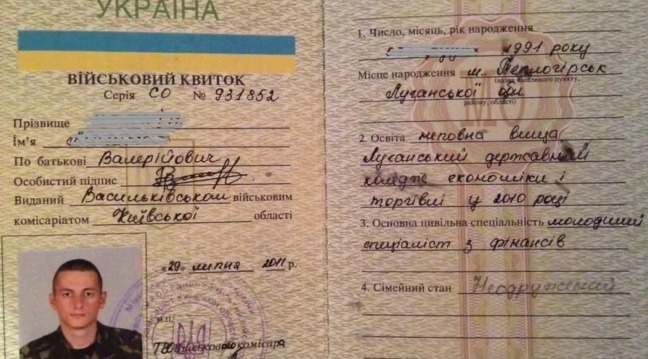 УКРАЇНА
ВІЙСЬКОВИЙ КВИТОК
Серія СО № 931852
Прізвище
Ім'я
По батькові Валерійович
Особистий підпис
Виданий Васильківським військовим
комісаріатом Київської області
«29» липня 2011 р.
М.П.
військового комісара
1. Число, місяць, рік народження
1991 року
Місце народження м. Теплогірськ
(назва населеного пункту,
Луганської
району, області)
2. Освіта неповна вища
Луганський державний
коледж економіки і
торгівлі у 2010 році
3. Основна цивільна спеціальність молодший
спеціаліст з фінансів
4. Сімейний стан Неодружений